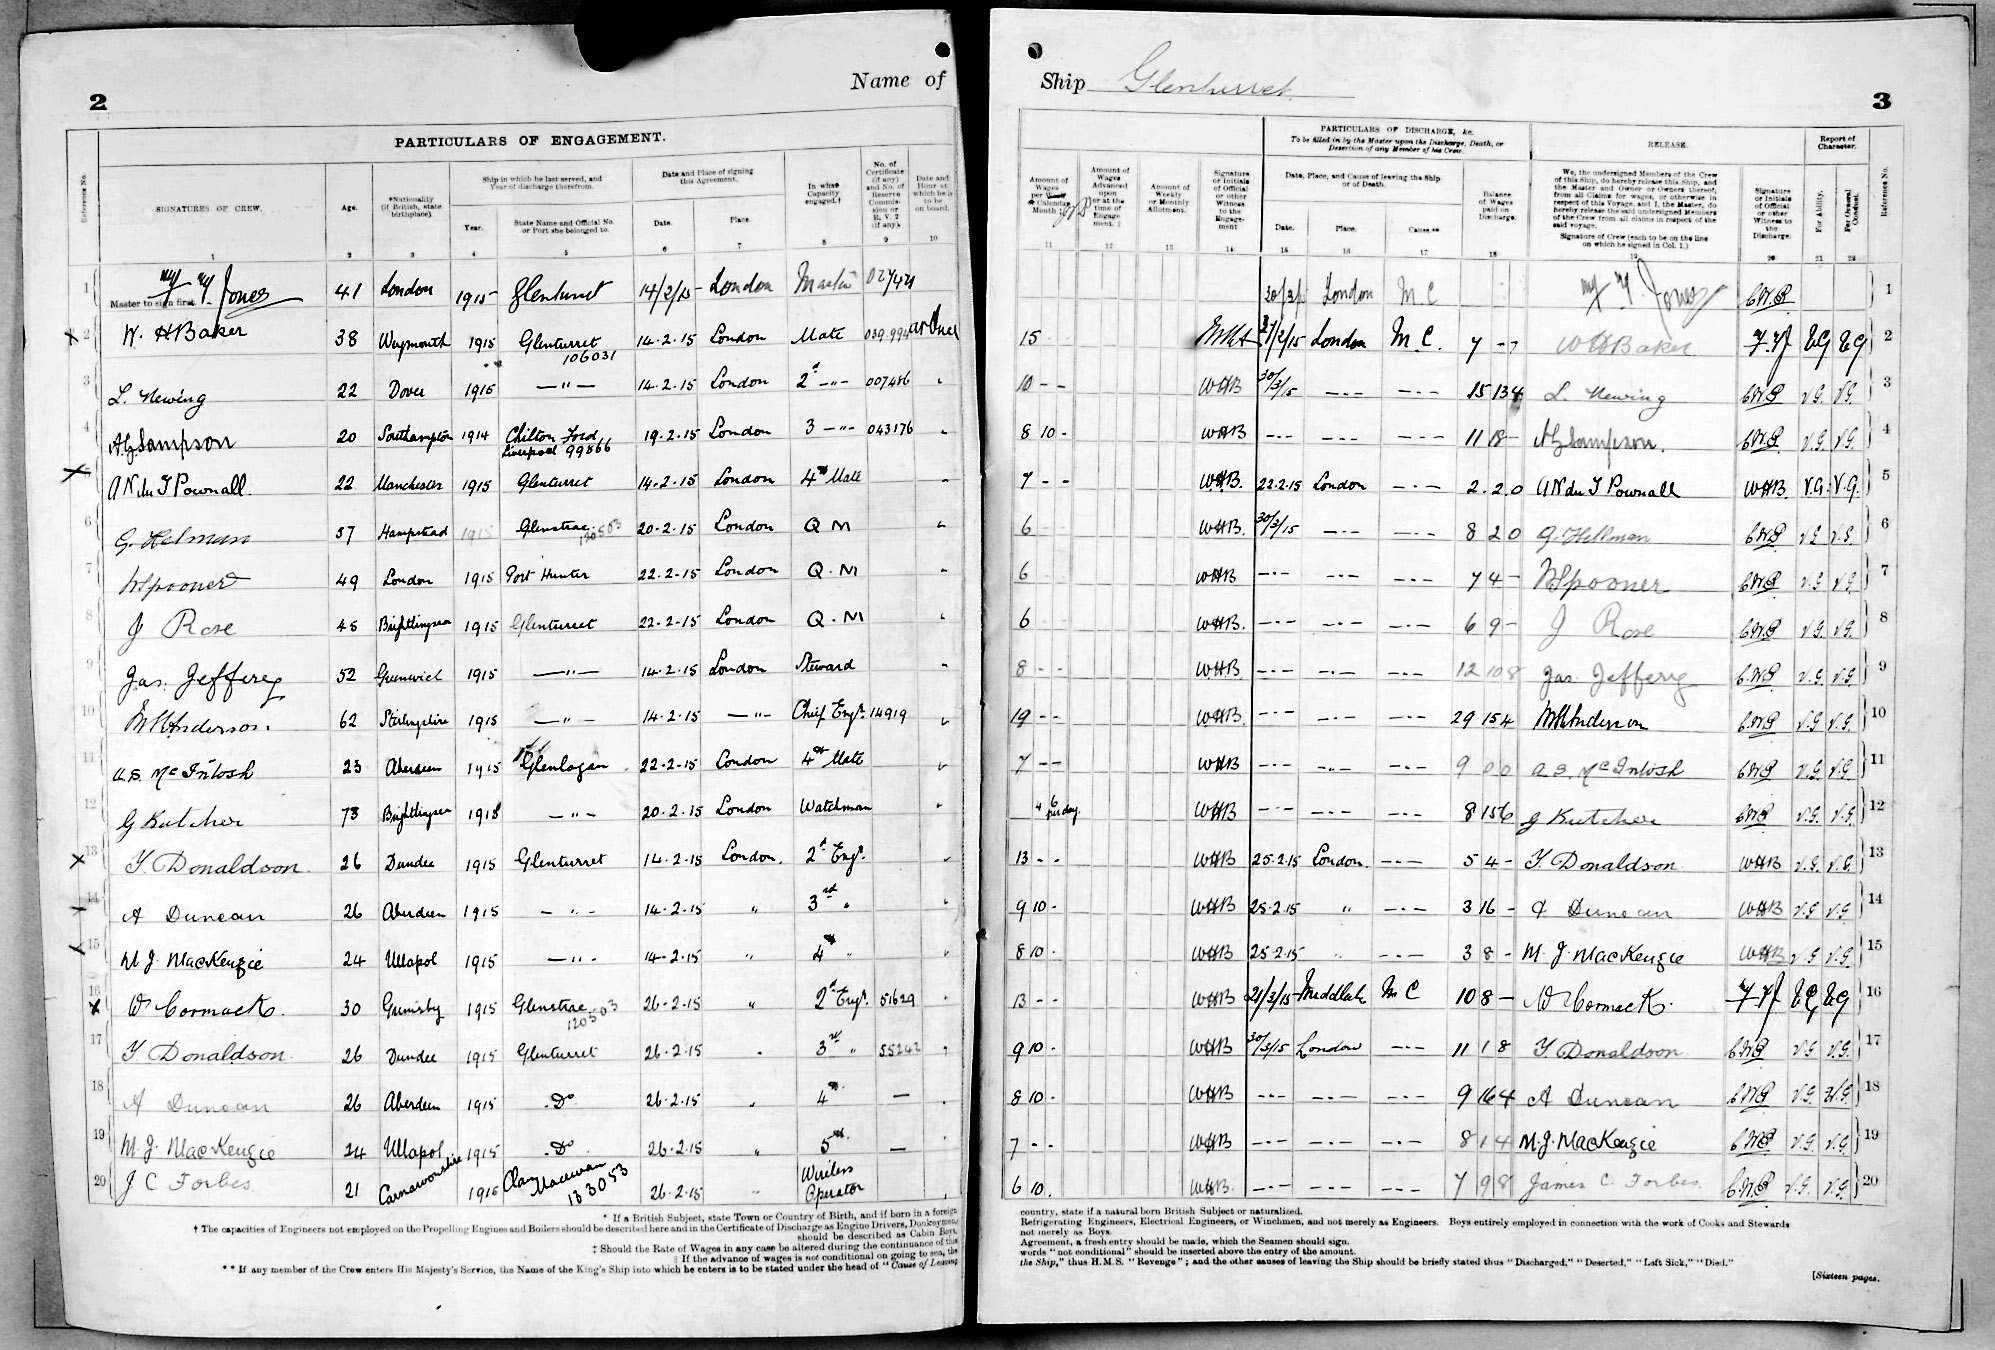 2
Name of
PARTICULARS OF ENGAGEMENT.
Reference No.
SIGNATURES OF CREW.
Age.
*Nationality (if British, state birthplace).
Ship in which he last served, and Year of discharge therefrom.
Year.
State Name and Official No. or Port she belonged to.
Date and Place of signing this Agreement.
Date.
Place.
In what Capacity engaged.†
No. of Certificate (if any) and No. of Reserve Commission or R.V. 2 (if any).
Date and Hour at which he is to be on board.
1 2 3 4 5 6 7 8 9 10
1 Master to sign first. Jones 41 London 1915 Glenturret 14/2/15 London Master
2 W. H Baker 38 Weymouth 1915 Glenturret 106031 14-2-15 London Mate 039.994 at Once
3 L. Newing 22 Dover 1915 —"— 14-2-15 London 2d —"— 007486 "
4 A G Sampson 20 Southampton 1914 Chilton Ford Liverpool 99866 19-2-15 London 3 —"— 043176 "
5 A N du T Pownall 22 Manchester 1915 Glenturret 14-2-15 London 4th Mate "
6 G. Helman 37 Hampstead 1915 Glenstrae 120503 20-2-15 London Q M "
7 W Spooner 49 London 1915 Port Hunter 22-2-15 London Q. M "
8 J Rose 45 Brightlingsea 1915 Glenturret 22-2-15 London Q. M "
9 Jas. Jeffery 52 Greenwich 1915 —"— 14-2-15 London Steward "
10 Anderson. 62 Stirlingshire 1915 —"— 14-2-15 —"— Chief Engr. 14919 "
11 A.S. McIntosh 23 Aberdeen 1915 Glenlogan 22-2-15 London 4th Mate "
12 G Kutcher 73 Brightlingsea 1915 —"— 20-2-15 London Watchman "
13 T. Donaldson 26 Dundee 1915 Glenturret 14-2-15 London. 2d Engr. "
14 A Duncan 26 Aberdeen 1915 —"— 14-2-15 " 3rd " "
15 M J. MacKenzie 24 Ullapol 1915 —"— 14-2-15 " 4th " "
16 W Cormack. 30 Grimsby 1915 Glenstrae 120503 26-2-15 " 2d Engr. 51629 "
17 T Donaldson 26 Dundee 1915 Glenturret 26-2-15 " 3rd " 55242 "
18 A Duncan 26 Aberdeen 1915 Do 26-2-15 " 4th —
19 M.J. MacKenzie 24 Ullapol 1915 Do 26-2-15 " 5th —
20 J C Forbes 21 Carnarvonshire 1915 Clan Macewan 133053 26-2-15 " Wireless Operator
* If a British Subject, state Town or Country of Birth, and if born in a foreign
† The capacities of Engineers not employed on the Propelling Engines and Boilers should be described here and in the Certificate of Discharge as Engine Drivers, Donkeymen
should be described as Cabin Boys,
‡ Should the Rate of Wages in any case be altered during the continuance of this
If the advance of wages is not conditional on going to sea, the
** If any member of the Crew enters His Majesty's Service, the Name of the King's Ship into which he enters is to be stated under the head of "Cause of Leaving
Ship Glenturret.
3
Amount of Wages per Calendar Month
Amount of Wages Advanced upon or at the time of Engagement. ‡
Amount of Weekly or Monthly Allotment.
Signature or Initials of Official or other Witness to the Engagement
PARTICULARS OF DISCHARGE, &c.
To be filled in by the Master upon the Discharge, Death, or Desertion of any Member of his Crew.
Date, Place, and Cause of leaving the Ship or of Death.
Date.
Place.
Cause.**
Balance of Wages paid on Discharge.
RELEASE.
We, the undersigned Members of the Crew of this Ship, do hereby release this Ship, and the Master and Owner or Owners thereof, from all Claims for wages, or otherwise in respect of this Voyage, and I, the Master, do hereby release the said undersigned Members of the Crew from all claims in respect of the said voyage.
Signature of Crew (each to be on the line on which he signed in Col. 1.)
Signature or Initials of Official or other Witness to the Discharge.
Report of Character.
For Ability.
For General Conduct.
Reference No.
11 12 13 14 15 16 17 18 19 20 21 22
London M C Jones 1
15 London M. C. 7 - 7 W H Baker V G V G 2
10 - - WHB 30/3/15 —"— —"— 15 13 4 L. Newing V.G. V.G. 3
8 10 - WHB —"— —"— —"— 11 18 - A G Sampson. V.G. V.G. 4
7 - - WHB. 22-2-15 London —"— 2. 2. 0 A N du T Pownall WHB. V.G. V.G. 5
6 WHB. 30/3/15 —"— —"— 8 2 0 G. Hellman V.G V.G. 6
6 WHB —"— —"— —"— 7 4 - W Spooner V.G V.G. 7
6 WHB. —"— —"— —"— 6 9 - J Rose V.G V.G. 8
8 - - WHB —"— —"— —"— 12 10 8 Jas. Jeffery V.G. V.G. 9
19 - - WHB. —"— —"— —"— 29 15 4 Anderson V.G V.G. 10
7 - - WHB —"— —"— —"— 9 0 0 A S. McIntosh V.G V.G. 11
4 6 per day. WHB —"— —"— —"— 8 15 6 G Kutcher V.G. V.G. 12
13 - - WHB 25-2-15 London. —"— 5 4 - T. Donaldson WHB V.G. V.G. 13
9 10 - WHB 25-2-15 " —"— 3 16 - A Duncan WHB V.G V.G. 14
8 10 - WHB 25-2-15 " —"— 3 8 - M. J. MacKenzie WHB V.G V.G. 15
13 - - WHB 21/3/15 M C 10 8 - W Cormack. V G V G 16
9 10 - WHB 30/3/15 London —"— 11 1 8 T Donaldson V.G V.G. 17
8 10 - WHB —"— —"— —"— 9 16 4 A Duncan V.G. V.G. 18
7 - - WHB —"— —"— —"— 8 1 4 M.J. MacKenzie V.G V.G. 19
6 10. WHB. —"— —"— —"— 7 9 8 James C. Forbes. V.G. V.G. 20
country, state if a natural born British Subject or naturalized.
Refrigerating Engineers, Electrical Engineers, or Winchmen, and not merely as Engineers. Boys entirely employed in connection with the work of Cooks and Stewards
not merely as Boys.
Agreement, a fresh entry should be made, which the Seamen should sign.
words "not conditional" should be inserted above the entry of the amount.
the Ship," thus H.M.S. "Revenge"; and the other causes of leaving the Ship should be briefly stated thus "Discharged," "Deserted," "Left Sick," "Died."
[Sixteen pages.